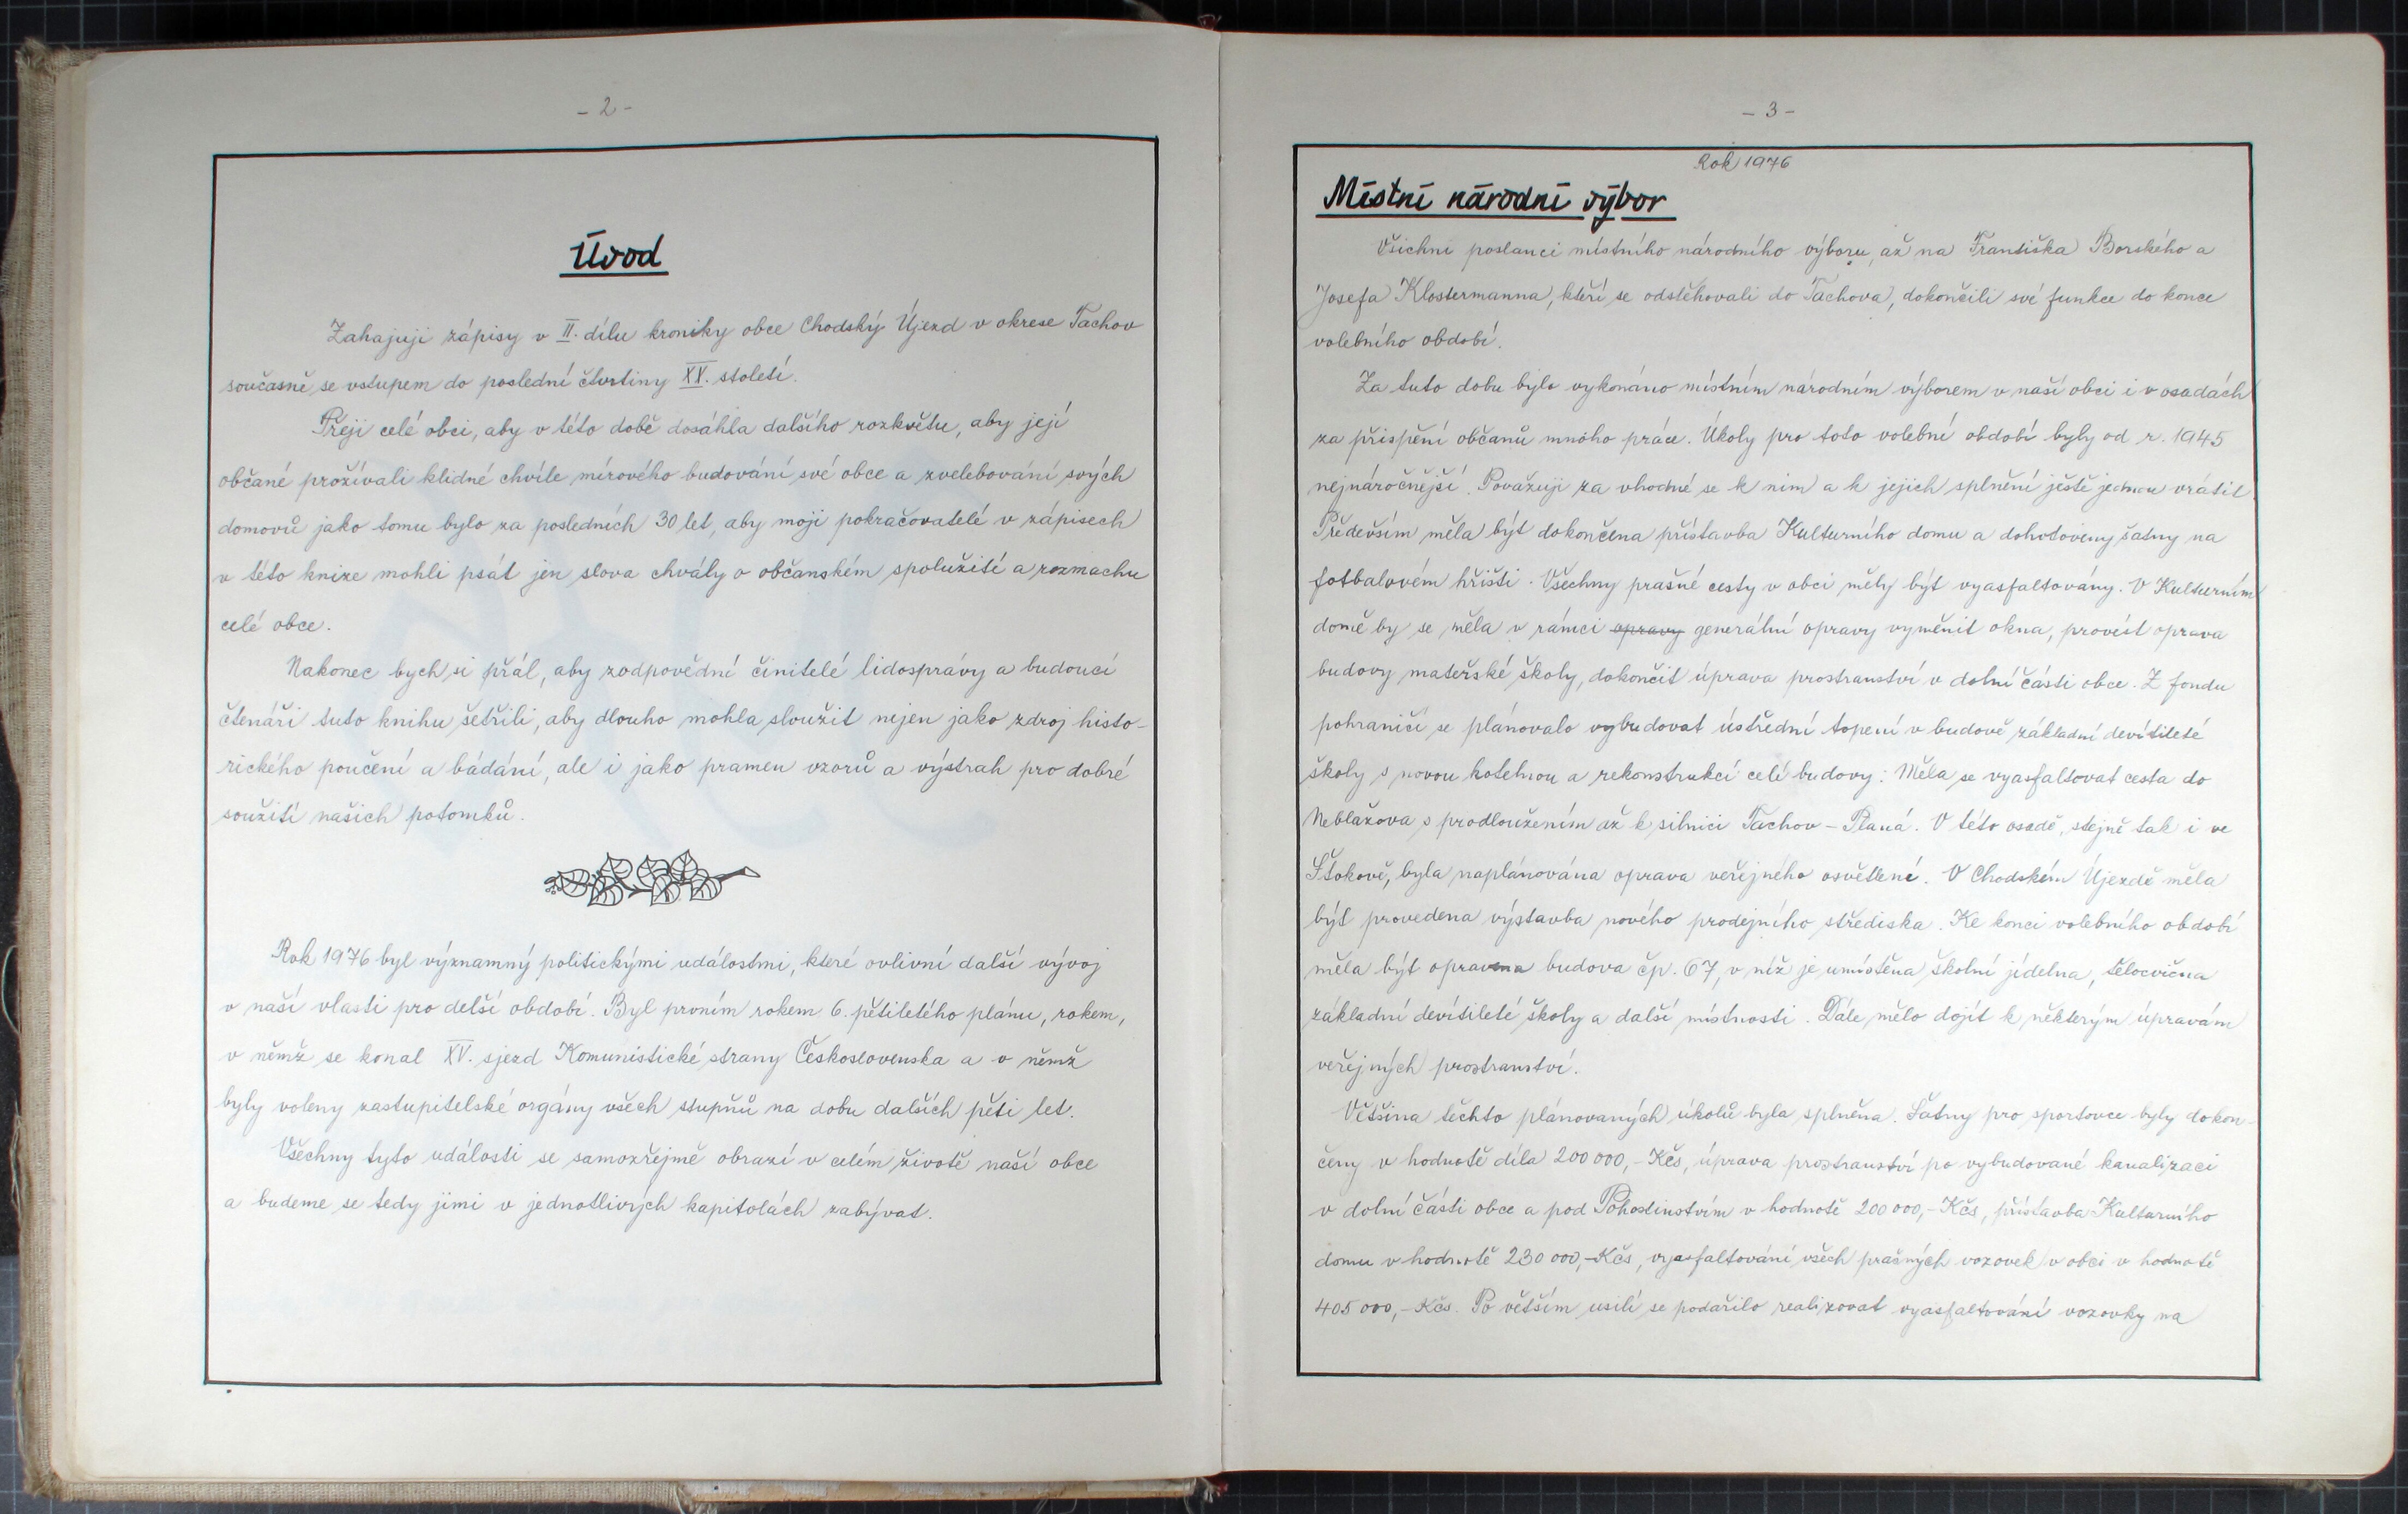 - 2 -
Úvod
Zahajuji zápisy v II. dílu kroniky obce Chodský Újezd v okrese Tachov
současně se vstupem do poslední čtvrtiny XX. století.
Přeji celé obci, aby v této době dosáhla dalšího rozkvětu, aby její
občané prožívali klidné chvíle mírového budování své obce a zvelebování svých
domovů jako tomu bylo za posledních 30 let, aby moji pokračovatelé v zápisech
v této knize mohli psát jen slova chvály o občanském spolužití a rozmachu
celé obce.
Nakonec bych si přál, aby zodpovědní činitelé lidosprávy a budoucí
čtenáři tuto knihu šetřili, aby dlouho mohla sloužit nejen jako zdroj histo-
rického poučení a bádání, ale i jako pramen vzorů a výstrah pro dobré
soužití našich potomků.
Rok 1976 byl významný politickými událostmi, které ovlivní další vývoj
v naší vlasti pro delší období. Byl prvním rokem 6. pětiletého plánu, rokem,
v němž se konal XV. sjezd Komunistické strany Československa a v němž
byly voleny zastupitelské orgány všech stupňů na dobu dalších pěti let.
Všechny tyto události se samozřejmě obrazí v celém životě naší obce
a budeme se tedy jimi v jednotlivých kapitolách zabývat.
- 3 -
Rok 1976
Místní národní výbor
Všichni poslanci místního národního výboru, až na Františka Borského a
Josefa Klostermanna, kteří se odstěhovali do Tachova, dokončili své funkce do konce
volebního období.
Za tuto dobu bylo vykonáno místním národním výborem v naší obci i v osadách
za přispění občanů mnoho práce. Úkoly pro toto volební období byly od r. 1945
nejnáročnější. Považuji za vhodné se k nim a k jejich splnění ještě jednou vrátit.
Především měla být dokončena přístavba Kulturního domu a dohotoveny šatny na
fotbalovém hřišti. Všechny prašné cesty v obci měly být vyasfaltovány. V Kulturním
domě by se měla v rámci opravy generální opravy vyměnit okna, provést oprava
budovy mateřské školy, dokončit úprava prostranství v dolní části obce. Z fondu
pohraničí se plánovalo vybudovat ústřední topení v budově základní devítileté
školy s novou kotelnou a rekonstrukcí celé budovy. Měla se vyasfaltovat cesta do
Neblažova s prodloužením až k silnici Tachov - Planá. V této osadě, stejně tak i ve
Štokově, byla naplánována oprava veřejného osvětlení. V Chodském Újezdě měla
být provedena výstavba nového prodejního střediska. Ke konci volebního období
měla být opravena budova čp. 67, v níž je umístěna školní jídelna, tělocvična
základní devítileté školy a další místnosti. Dále mělo dojít k některým úpravám
veřejných prostranství.
Většina těchto plánovaných úkolů byla splněna. Šatny pro sportovce byly dokon-
čeny v hodnotě díla 200 000,- Kčs, úprava prostranství po vybudované kanalizaci
v dolní části obce a pod Pohostinstvím v hodnotě 200 000,- Kčs, přístavba Kulturního
domu v hodnotě 230 000,- Kčs, vyasfaltování všech prašných vozovek v obci v hodnotě
405 000,- Kčs. Po větším usilí se podařilo realizovat vyasfaltování vozovky na